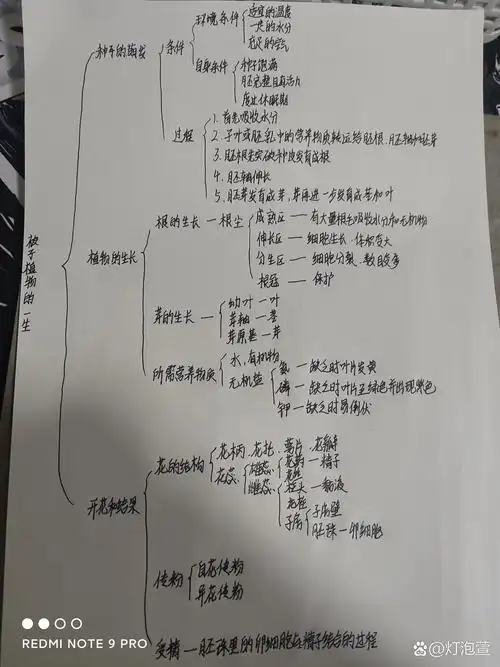 被子植物的一生
种子的萌发
条件
环境条件
适宜的温度
一定的水分
充足的空气
自身条件
种子饱满
胚完整且有活力
度过休眠期
过程
1. 首先吸收水分
2. 子叶或胚乳中的营养物质转运给胚根、胚轴和胚芽
3. 胚根先突破种皮发育成根
4. 胚轴伸长
5. 胚芽发育成芽,芽再进一步发育成茎和叶
植物的生长
根的生长 — 根尖
成熟区 — 有大量根毛吸收水分和无机物
伸长区 — 细胞生长、体积变大
分生区 — 细胞分裂、数目变多
根冠 — 保护
芽的生长
幼叶 — 叶
芽轴 — 茎
芽原基 — 芽
所需营养物质
水、有机物
无机盐
氮 — 缺乏时叶片发黄
磷 — 缺乏时叶片呈绿色并出现紫色
钾 — 缺乏时易倒伏
开花和结果
花的结构
花柄、花托、萼片、花瓣
花蕊
雄蕊
花药 — 精子
花丝
雌蕊
柱头 — 黏液
花柱
子房
子房壁
胚珠 — 卵细胞
传粉
自花传粉
异花传粉
受精 — 胚珠里的卵细胞与精子结合的过程
REDMI NOTE 9 PRO
@灯泡萱